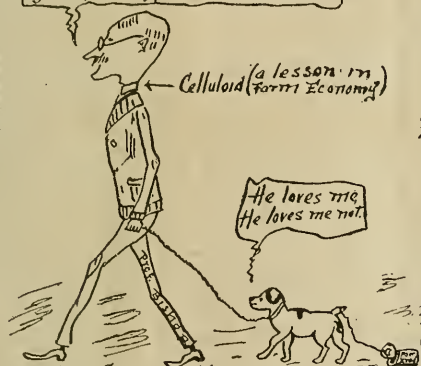 Celluloid (a lesson in
Farm Economy)
He loves me,
He loves me not.
Prof. Bishop